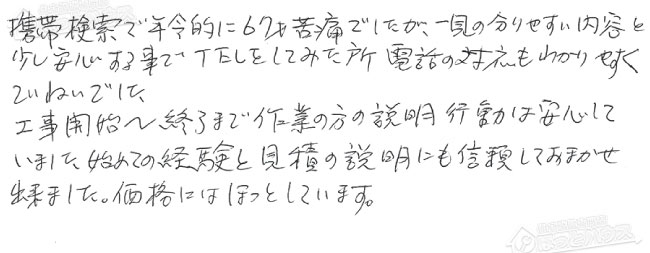 携帯検索で年令的に67才苦痛でしたが、一見の分りやすい内容と
少し安心する事でTELをしてみた所 電話の対応もわかりやすく
ていねいでした、
工事開始〜終了まで作業の方の説明 行動は安心して
いました、始めての経験と見積の説明にも信頼しておまかせ
出来ました。価格にはほっとしています。